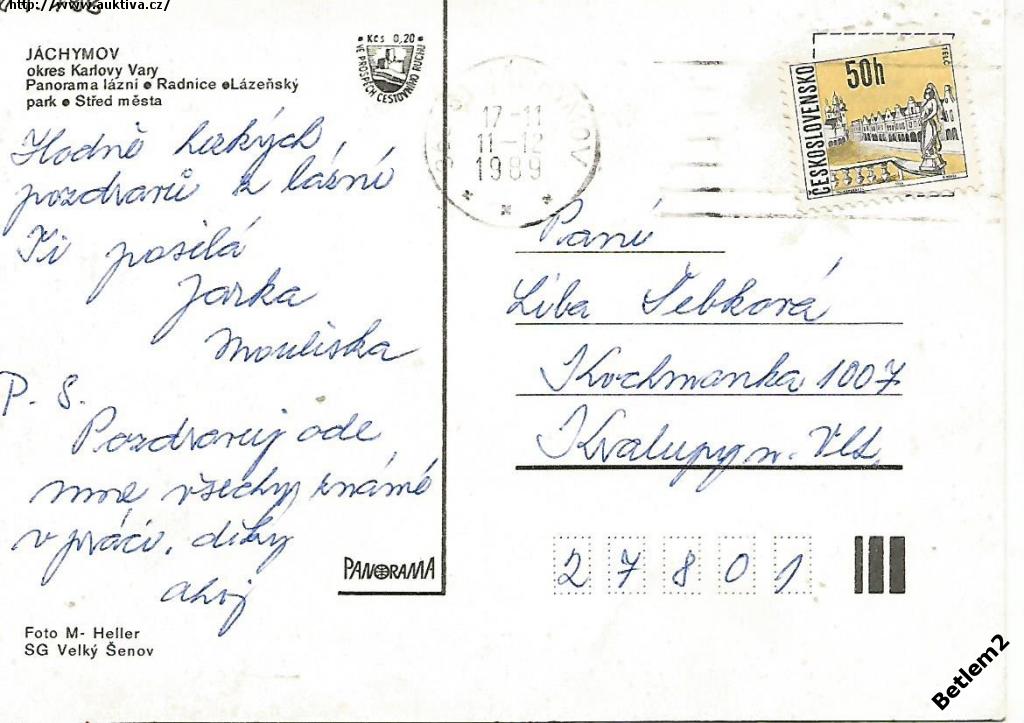 http://www.auktiva.cz/
JÁCHYMOV
okres Karlovy Vary
Panorama lázní ● Radnice ● Lázeňský
park ● Střed města
Kčs 0,20
VE PROSPĚCH CESTOVNÍHO RUCHU
17-11
11-12
1989
ČESKOSLOVENSKO
50h
TELČ
Hodně hezkých
pozdravů z lázní
Ti posílá
Jarka
P. S.
Pozdravuj ode
mne všechny známé
v práci, díky
ahoj
Paní
Liba Šebková
1007
Kralupy n. Vlt.
27801
PANORAMA
Foto M- Heller
SG Velký Šenov
Betlem2